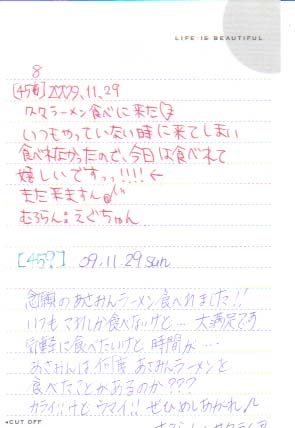 LIFE IS BEAUTIFUL
8
2009.11.29
ラーメン食べに来た
いつもやっていない時に来てしまい
食べれなかったので、今日は食べれて
嬉しいですっっ!!!!←
また来ますん
むらん：えぐちゅん
[459] 09.11.29 sun
念願のあさおんラーメン食べれました!!
いつも しか食べないけど… 大満足です
気軽に食べたいけど 時間が…
あさおんは何度 あさおんラーメンを
食べたことがあるのか???
カライ!けどウマイ!! ぜひめしあがれ♪
CUT OFF